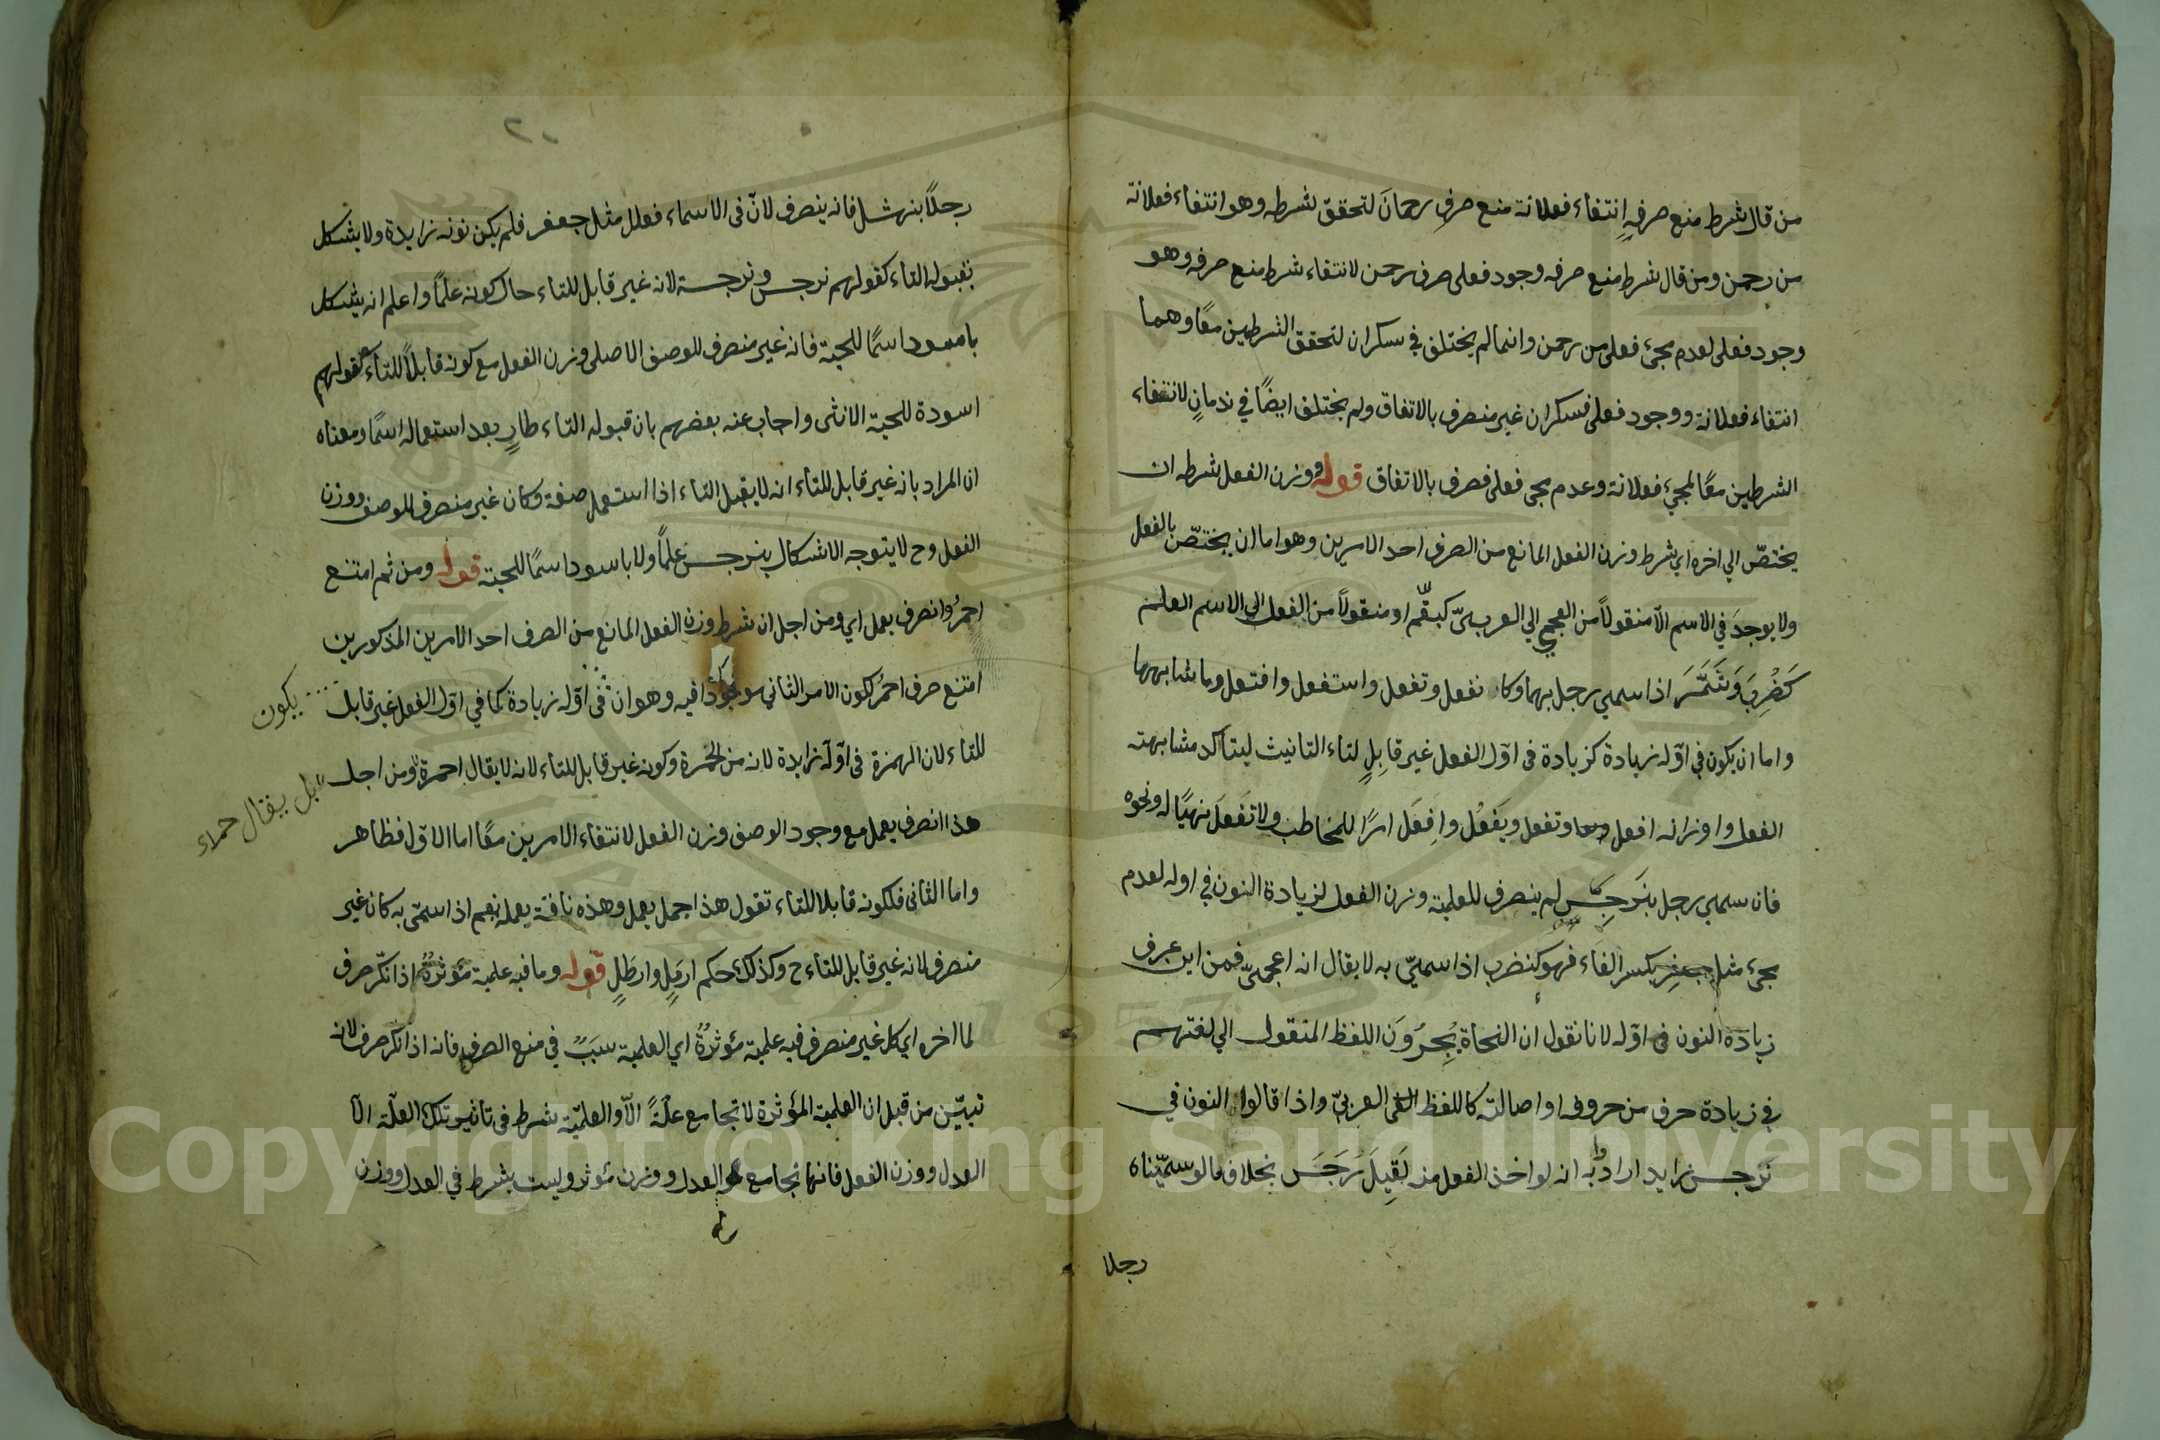 من قال شرط منع صرفه انتفاء فعلانة منع صرف رحمان لتحقق شرطه وهو انتفاء فعلانة
من رحمن ومن قال شرط منع صرفه وجود فعلى صرف رحمن لانتفاء شرط منع صرفه وهو
وجود فعلى لعدم مجئ فعلى من رحمن وانما لم يختلف في سكران لتحقق الشرطين معًا وهما
انتفاء فعلانة ووجود فعلى فسكران غير منصرف بالاتفاق ولم يختلف ايضًا في ندمانٍ لانتفاء
الشرطين معًا لمجئ فعلانة وعدم مجى فعلى فصرف بالاتفاق قوله ووزن الفعل شرطه ان
يختصّ الي اخره اي شرط وزن الفعل المانع من الصرف احد الامرين وهو اما ان يختصّ بالفعل
ولا يوجدَ في الاسم الّا منقولاً من العجمي الي العربىّ كبقّم او منقولاً من الفعل الي الاسم العلم
كَضُرِبَ وَشَمَّرَ اذا سمي رجل بهما وكا نفعل وتفعل واستفعل وافتعل وما شابهها
واما ان يكون في اوّله زيادة كزيادة فى اوّل الفعل غير قابِلٍ لتاء التانيث ليتاكد مشابهته
الفعل واوزانه افعل وتفعل ويَفعُل وافِعَل امرًا للمخاطب ولا تَفعَل نهيًا له ونحوه
فان سمي رجل بنَرجِسٍ لم ينصرف للعلمية وزن الفعل لزيادة النون في اوله لعدم
مجىء مثل جعفِر بكسر الفاء فهو كنضرب اذا سميّ به لا يقال انه اعجمىّ فمن اين عرف
زيادة النون فى اوّله لانا نقول ان النحاة يُجِرُوَن اللفظ المنقول الي لغتهم
في زيادة حرف من حروفه او اصالته كاللفظ العربيّ واذا قالوا النون في
نَرجس زايد ارادُوْا به انه لو اخذ الفعل منه لَقِيلَ رَجَسَ بخلاف ما لو سمّيناه
رجلا
٢٠
رجلاً بنهشل فانه ينصرف لانّ فى الاسماء فعلل مثل جعفر فلم يكن نونه زايدة ولا يشكل
بقبوله التاء كقولهم نرجس ونرجسة لانه غير قابل للتاء حال كونه علمًا واعلم انه يشكل
باسود اسمًا للحية فانه غير منصرف للوصف الاصلى ووزن الفعل مع كونه قابلاً للتاء كقولهم
اسودة للحية الانثى واجاب عنه بعضهم بان قبوله التاء طارٍ بعد استعماله اسمًا ومعناه
ان المراد بانه غير قابل للتاء انه لا يقبل التاء اذا استعمل صفة وكان غير منصرف للوصف ووزن
الفعل وح لا يتوجه الاشكال بنرجس علمًا ولا باسود اسمًا للحية قوله ومن ثم امتنع
احمرُ وانصرف يعمل اي ومن اجل ان شرط وزن الفعل المانع من الصرف احد الامرين المذكورين
امتنع صرف احمُر لكون الامر الثاني موجودًا فيه وهو ان فى اوّله زيادة كما في اوّل الفعل غير قابل
يكون
للتاء لان الهمزة فى اوّله زايدة لانه من الحُمرة وكونه غير قابل للتاء لانه لا يقال احمرة ومن اجل
بل يقال حمراء
هذا انصرف يعمل مع وجود الوصف وزن الفعل لانتفاء الامرين معًا اما الاوّل فظاهر
واما الثانى فلكونه قابلا للتاء تقول هذا جمل يعمل وهذه ناقة يعملة نعم اذا سمّى به كان غير
منصرف لانه غير قابل للتاء ح وكذلك حكم ارمَلٍ وارطَلٍ قوله وما فيه علمية مؤثرةُ اذا نكّر صرف
لما اخره اي كل غير منصرف فيه علمية مؤثرةُ اي العلمية سببٌ في منع الصرف فانه اذا نكر صرف لانه
تبيّن من قبل ان العلمية المؤثرة لا تجامع علّةً الّا والعلميّة شرط فى تاثير تلك العلّة الّا
العدل ووزن الفعل فانها تجامع العدل ووزن مؤثر وليست بشرط في العدل ووزن